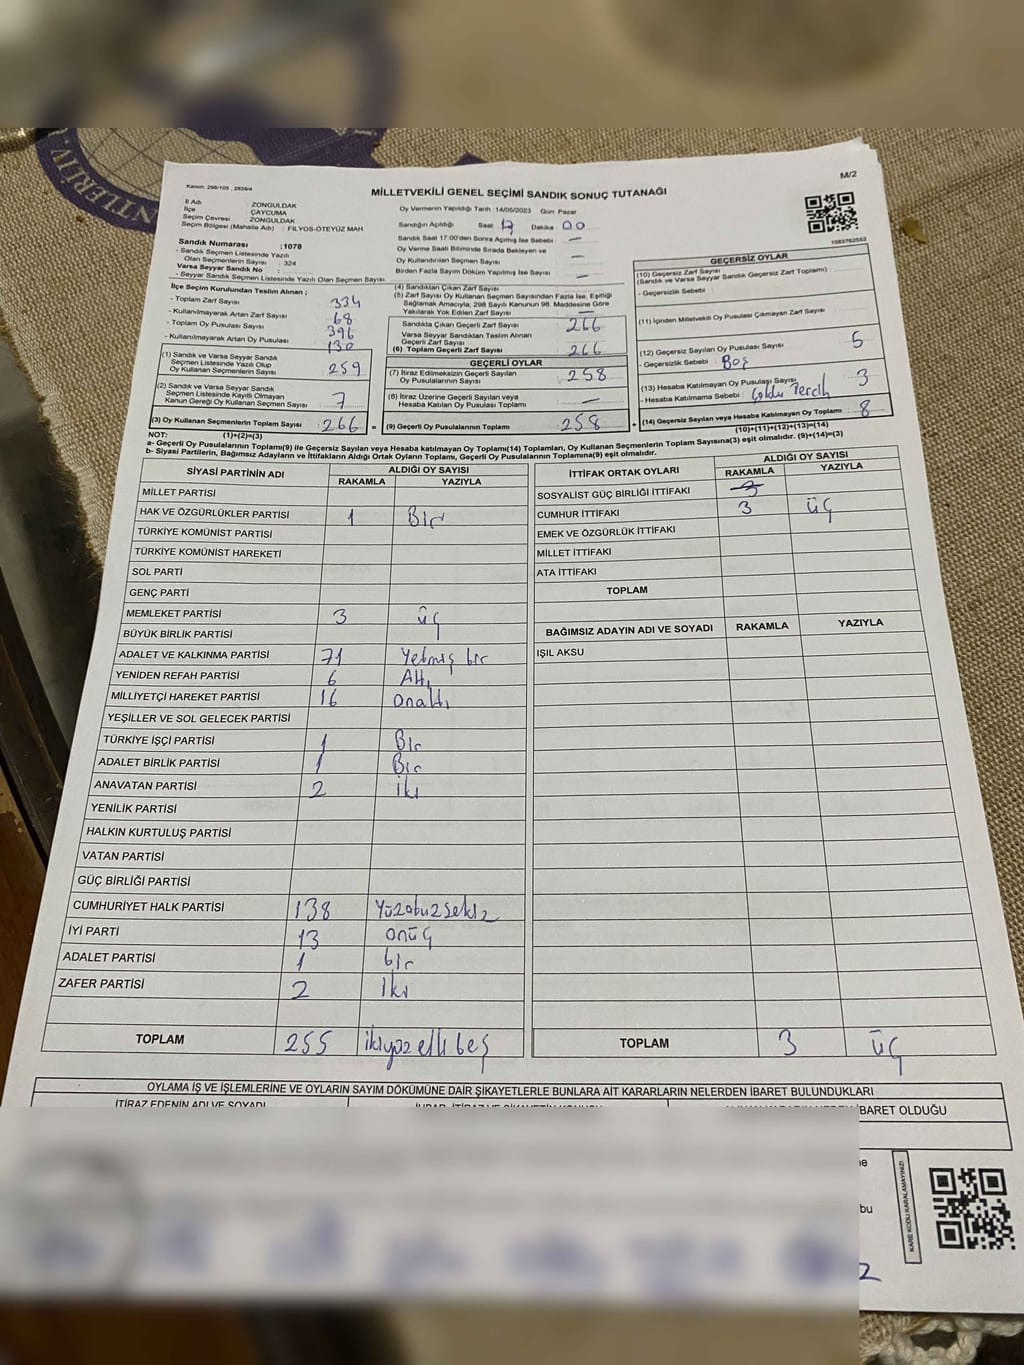 NTLERİ V.
Kanun: 298/105 , 2839/4
M/2
MİLLETVEKİLİ GENEL SEÇİMİ SANDIK SONUÇ TUTANAĞI
İl Adı : ZONGULDAK
İlçe : ÇAYCUMA
Seçim Çevresi : ZONGULDAK
Seçim Bölgesi (Mahalle Adı) : FİLYOS-ÖTEYÜZ MAH
Sandık Numarası :1078
- Sandık Seçmen Listesinde Yazılı
Olan Seçmenlerin Sayısı : 324
Varsa Seyyar Sandık No :
- Seyyar Sandık Seçmen Listesinde Yazılı Olan Seçmen Sayısı
Oy Vermenin Yapıldığı Tarih :14/05/2023 Gün: Pazar
Sandığın Açıldığı Saat 17 Dakika 00
Sandık Saat 17:00'den Sonra Açılmış İse Sebebi —
Oy Verme Saati Bitiminde Sırada Bekleyen ve
Oy Kullandırılan Seçmen Sayısı —
Birden Fazla Sayım Döküm Yapılmış İse Sayısı —
1083762552
İlçe Seçim Kurulundan Teslim Alınan ;
- Toplam Zarf Sayısı 334
- Kullanılmayarak Artan Zarf Sayısı 68
- Toplam Oy Pusulası Sayısı 396
- Kullanılmayarak Artan Oy Pusulası 130
(1) Sandık ve Varsa Seyyar Sandık
Seçmen Listesinde Yazılı Olup
Oy Kullanan Seçmenlerin Sayısı 259
(2) Sandık ve Varsa Seyyar Sandık
Seçmen Listesinde Kayıtlı Olmayan
Kanun Gereği Oy Kullanan Seçmen Sayısı 7
(3) Oy Kullanan Seçmenlerin Toplam Sayısı 266 =
(4) Sandıktan Çıkan Zarf Sayısı
(5) Zarf Sayısı Oy Kullanan Seçmen Sayısından Fazla İse, Eşitliği
Sağlamak Amacıyla, 298 Sayılı Kanunun 98. Maddesine Göre
Yakılarak Yok Edilen Zarf Sayısı —
Sandıkta Çıkan Geçerli Zarf Sayısı 266
Varsa Seyyar Sandıktan Teslim Alınan
Geçerli Zarf Sayısı
(6) Toplam Geçerli Zarf Sayısı 266
GEÇERLİ OYLAR
(7) İtiraz Edilmeksizin Geçerli Sayılan
Oy Pusulalarının Sayısı 258
(8) İtiraz Üzerine Geçerli Sayılan veya
Hesaba Katılan Oy Pusulası Toplamı —
(9) Geçerli Oy Pusulalarının Toplamı 258 +
GEÇERSİZ OYLAR
(10) Geçersiz Zarf Sayısı
(Sandık ve Varsa Seyyar Sandık Geçersiz Zarf Toplamı)
- Geçersizlik Sebebi :
(11) İçinden Milletvekili Oy Pusulası Çıkmayan Zarf Sayısı
(12) Geçersiz Sayılan Oy Pusulası Sayısı 5
- Geçersizlik Sebebi : Boş
(13) Hesaba Katılmayan Oy Pusulası Sayısı 3
- Hesaba Katılmama Sebebi : Çoklu Tercih
(14) Geçersiz Sayılan veya Hesaba Katılmayan Oy Toplamı 8
NOT: (1)+(2)=(3) (10)+(11)+(12)+(13)=(14)
a- Geçerli Oy Pusulalarının Toplamı(9) ile Geçersiz Sayılan veya Hesaba katılmayan Oy Toplamı(14) Toplamları, Oy Kullanan Seçmenlerin Toplam Sayısına(3) eşit olmalıdır. (9)+(14)=(3)
b- Siyasi Partilerin, Bağımsız Adayların ve İttifakların Aldığı Ortak Oyların Toplamı, Geçerli Oy Pusulalarının Toplamına(9) eşit olmalıdır.
SİYASİ PARTİNİN ADI ALDIĞI OY SAYISI
RAKAMLA YAZIYLA
MİLLET PARTİSİ
HAK VE ÖZGÜRLÜKLER PARTİSİ 1 Bir
TÜRKİYE KOMÜNİST PARTİSİ
TÜRKİYE KOMÜNİST HAREKETİ
SOL PARTİ
GENÇ PARTİ
MEMLEKET PARTİSİ 3 üç
BÜYÜK BİRLİK PARTİSİ
ADALET VE KALKINMA PARTİSİ 71 Yetmiş bir
YENİDEN REFAH PARTİSİ 6 Altı
MİLLİYETÇİ HAREKET PARTİSİ 16 onaltı
YEŞİLLER VE SOL GELECEK PARTİSİ
TÜRKİYE İŞÇİ PARTİSİ 1 Bir
ADALET BİRLİK PARTİSİ 1 Bir
ANAVATAN PARTİSİ 2 iki
YENİLİK PARTİSİ
HALKIN KURTULUŞ PARTİSİ
VATAN PARTİSİ
GÜÇ BİRLİĞİ PARTİSİ
CUMHURİYET HALK PARTİSİ 138 Yüzotuzsekiz
İYİ PARTİ 13 onüç
ADALET PARTİSİ 1 bir
ZAFER PARTİSİ 2 iki
TOPLAM 255 ikiyüz elli beş
İTTİFAK ORTAK OYLARI ALDIĞI OY SAYISI
RAKAMLA YAZIYLA
SOSYALİST GÜÇ BİRLİĞİ İTTİFAKI 3
CUMHUR İTTİFAKI 3 üç
EMEK VE ÖZGÜRLÜK İTTİFAKI
MİLLET İTTİFAKI
ATA İTTİFAKI
TOPLAM
BAĞIMSIZ ADAYIN ADI VE SOYADI RAKAMLA YAZIYLA
IŞIL AKSU
TOPLAM 3 üç
OYLAMA İŞ VE İŞLEMLERİNE VE OYLARIN SAYIM DÖKÜMÜNE DAİR ŞİKAYETLERLE BUNLARA AİT KARARLARIN NELERDEN İBARET BULUNDUKLARI
İTİRAZ EDENİN ADI VE SOYADI
İBARET OLDUĞU
bu
KARE KODU KARALAMAYINIZ!
2